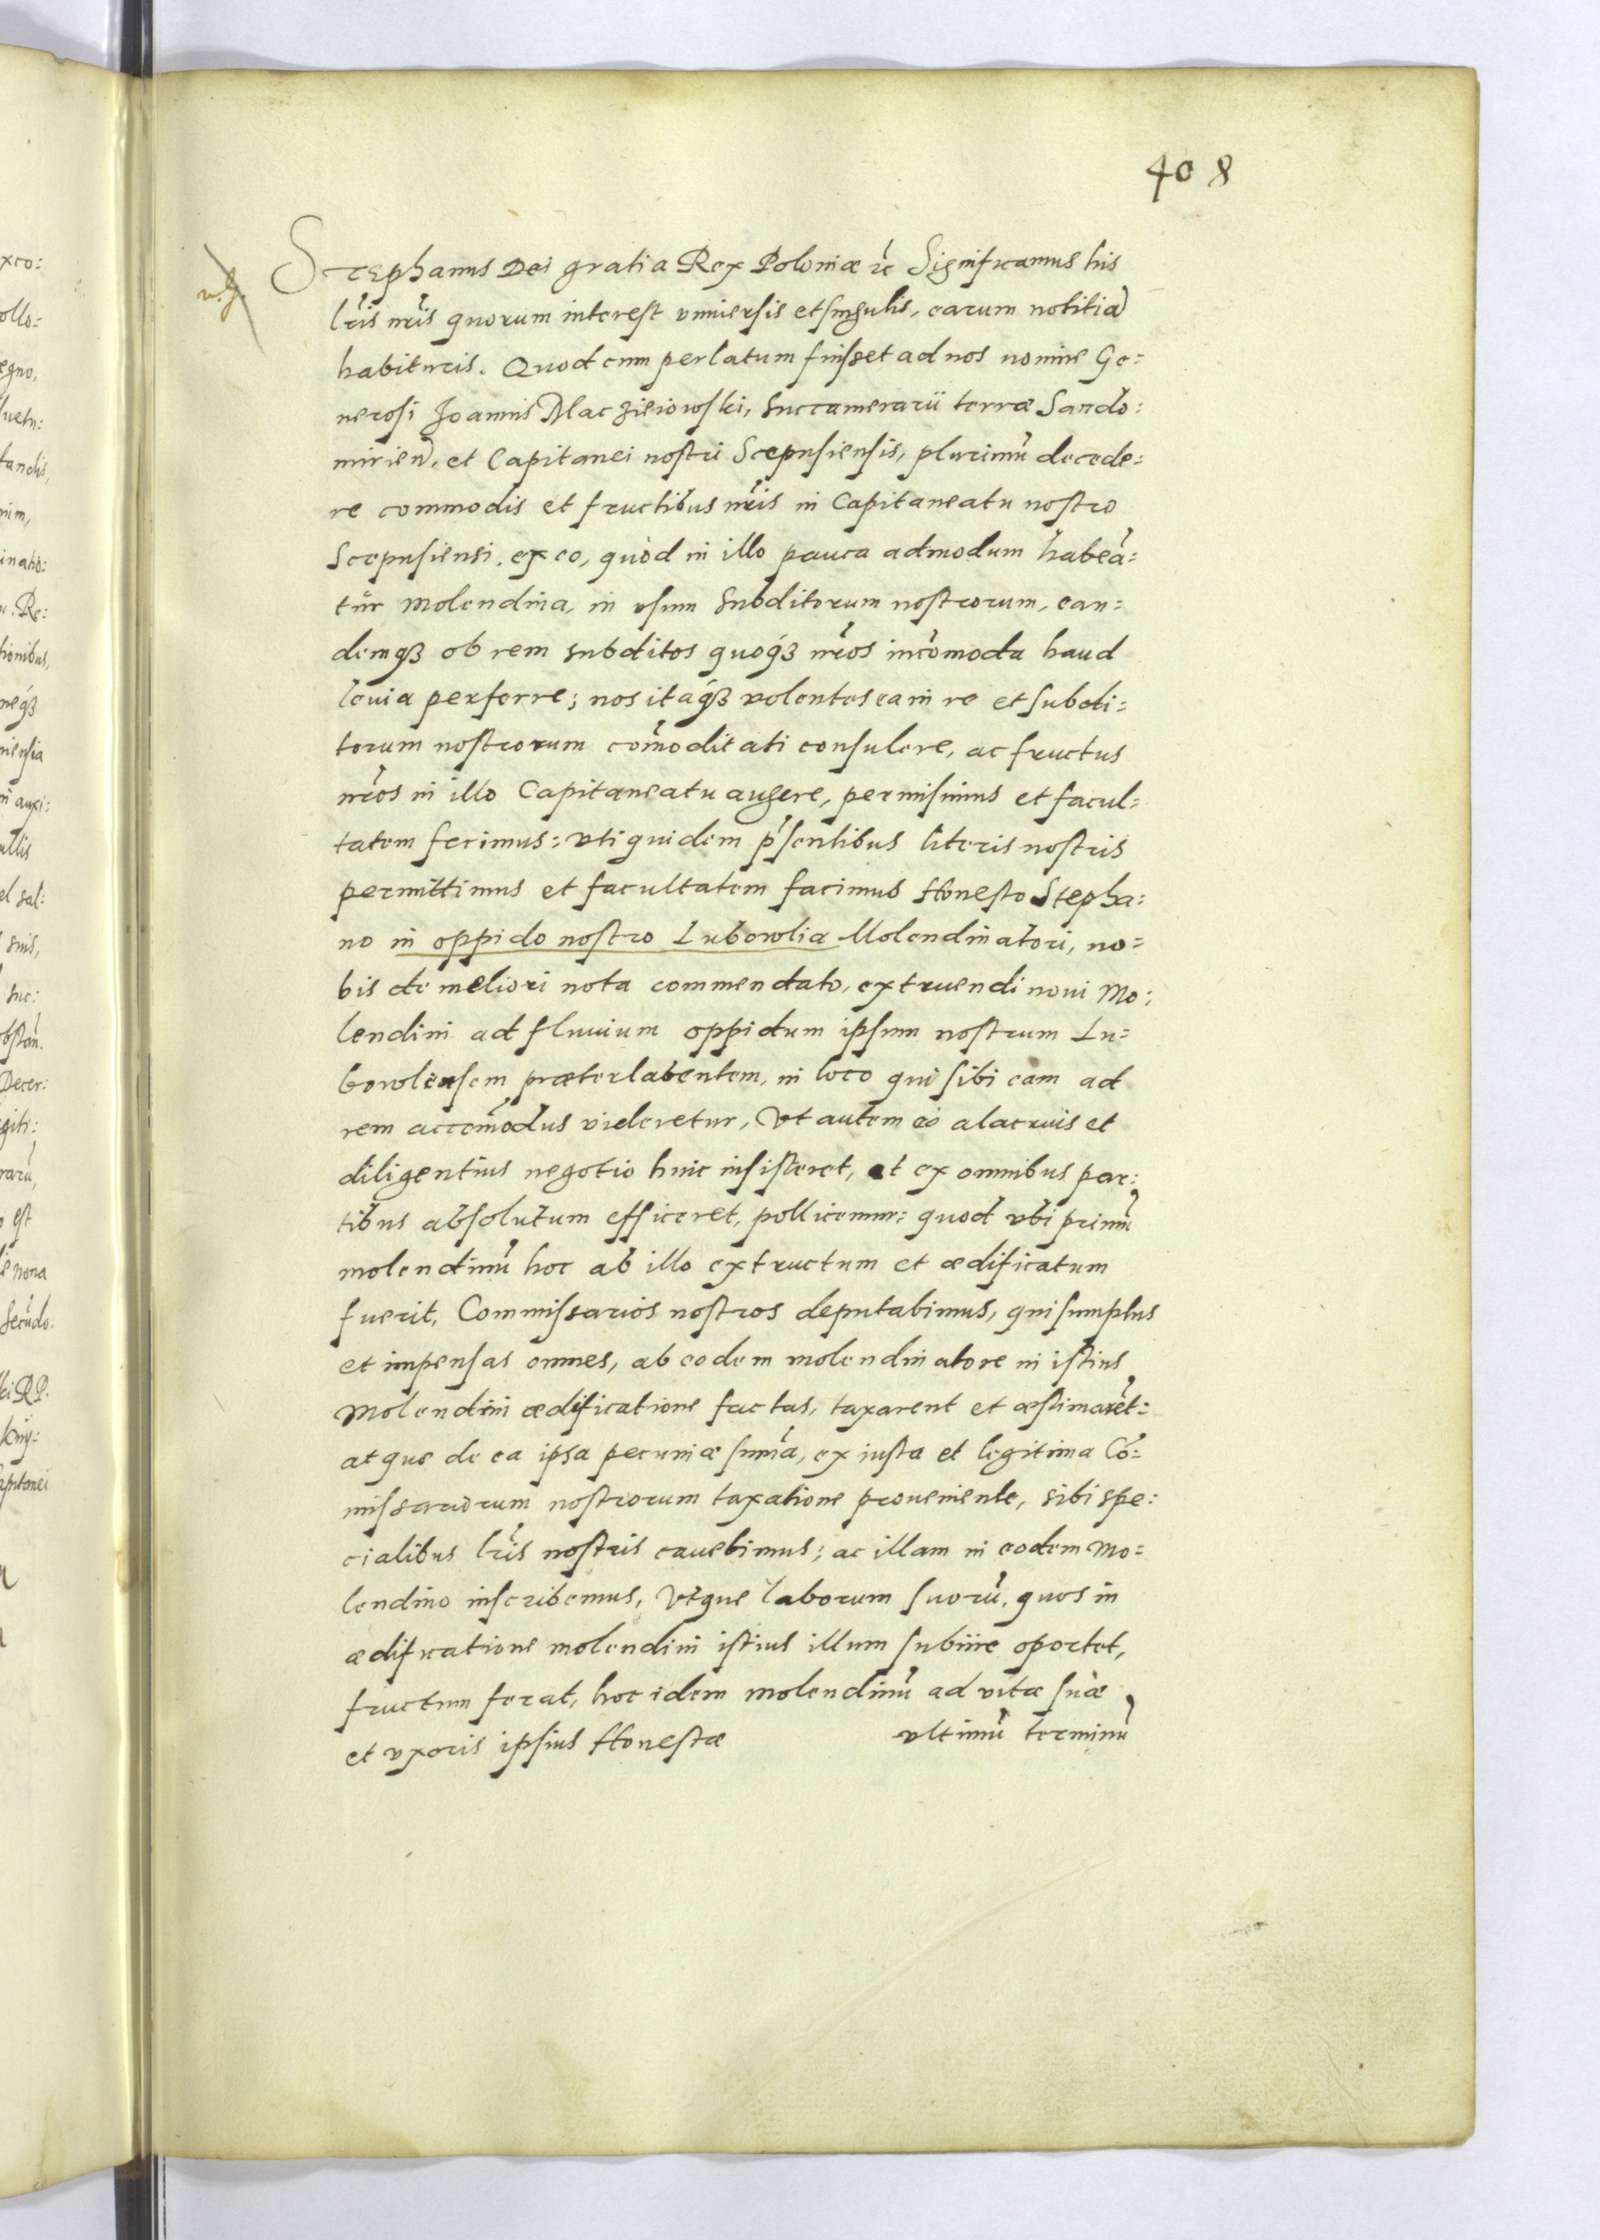 408
Stephanus Dei gratia Rex Poloniæ ꝛc̃ Significamus his
lr̃is nr̃is quorum interest vniuersis et singulis, earum notitiã
habituris. Quod cum perlatum fuisset ad nos nomine Ge=
nerosi Joannis Maczieiowski, Succamerarii terræ Sando:
mirien̄, et Capitanei nostri Scepusiensis, plurimũ decede:
re commodis et fructibus nr̃is in Capitaneatu nostro
Scepusiensi, ex eo, quòd in illo pauca admodum habeã:
tur molendina, in vsum subditorum nostrorum, ean:
demqꝫ ob rem subditos quoqꝫ nr̃os incõmoda haud
leuia perferre; nos itaqꝫ volentes ea in re et subdi:
torum nostrorum cõmoditati consulere, ac fructus
nr̃os in illo Capitaneatu augere, permisimus et facul=
tatem fecimus: vti quidem p̃sentibus literis nostris
permittimus et facultatem facimus Honesto Stepha:
no in oppido nostro Lubowlia Molendinatori, no=
bis de meliori nota commendato, extruendi noui Mo:
lendini ad fluuium oppidum ipsum nostrum Lu=
bowlensem præterlabentem, in loco qui sibi eam ad
rem accõmodus videretur, Vt autem eò alacrius et
diligentius negotio huic insisteret, et ex omnibus par:
tibus absolutum efficeret, pollicemur: quod vbi primũ
molendinũ hoc ab illo extructum et ædificatum
fuerit, Commissarios nostros deputabimus, qui sumptus
et impensas omnes, ab eodem molendinatore in istius
Molendini ædificatione factas, taxarent et æstimarẽt:
atque de ea ipsa pecuniæ sum̃a, ex iusta et legitima Cõ=
missariorum nostrorum taxatione proueniente, sibi spe:
cialibus lr̃is nostris cauebimus; ac illam in eodem Mo=
lendino inscribemus, Vtque laborum suorũ, quos in
ædificatione molendini istius illum subiire oportet,
fructum ferat, hoc idem molendinũ ad vitæ suæ
et vxoris ipsius Honestæ vltimũ terminũ